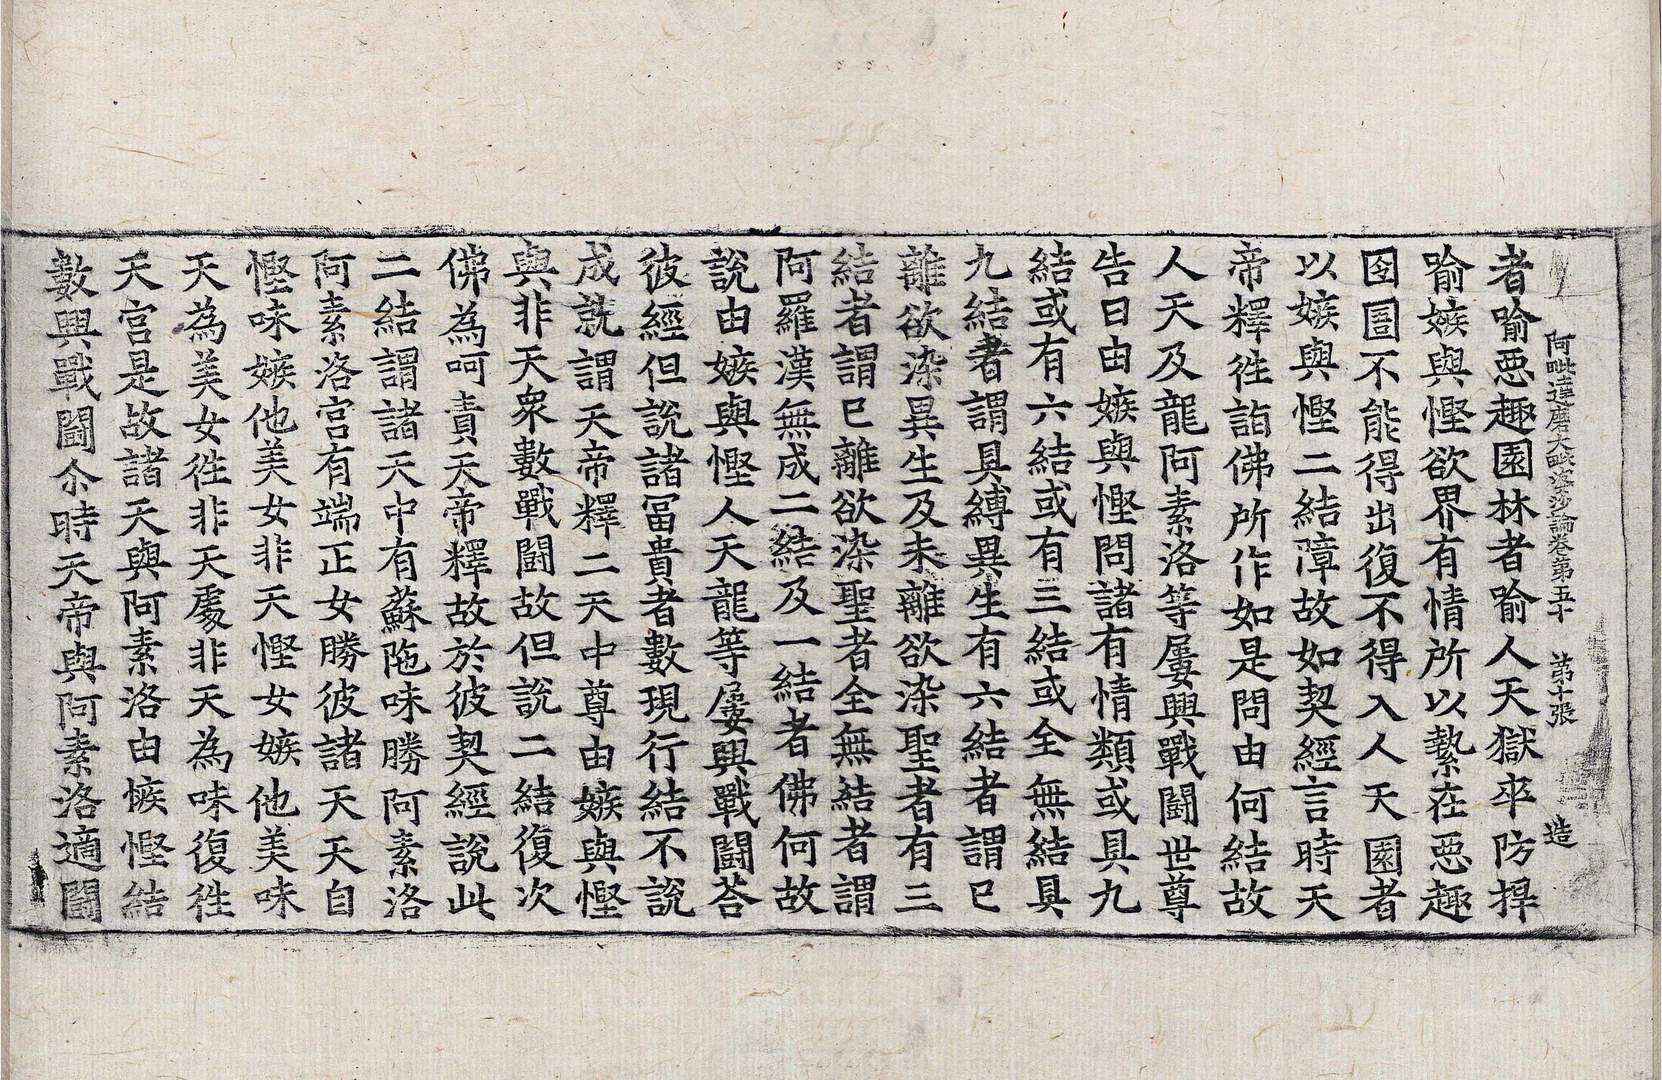 阿毗達磨大毗婆沙論卷第五十 第十張 造
者喻惡趣園林者喻人天獄卒防捍
喻嫉與慳欲界有情所以縶在惡趣
囹圄不能得出復不得入人天園者
以嫉與慳二結障故如契經言時天
帝釋徃詣佛所作如是問由何結故
人天及龍阿素洛等屢興戰鬪世尊
告曰由嫉與慳問諸有情類或具九
結或有六結或有三結或全無結具
九結者謂具縛異生有六結者謂已
離欲染異生及未離欲染聖者有三
結者謂已離欲染聖者全無結者謂
阿羅漢無成二結及一結者佛何故
說由嫉與慳人天龍等屢興戰鬪荅
彼經但說諸冨貴者數現行結不說
成就謂天帝釋二天中尊由嫉與慳
與非天衆數戰鬪故但說二結復次
佛為呵責天帝釋故於彼契經說此
二結謂諸天中有蘇陁味勝阿素洛
阿素洛宮有端正女勝彼諸天天自
慳味嫉他美女非天慳女嫉他美味
天為美女徃非天處非天為味復徃
天宮是故諸天與阿素洛由嫉慳結
數興戰鬪尒時天帝與阿素洛適鬪